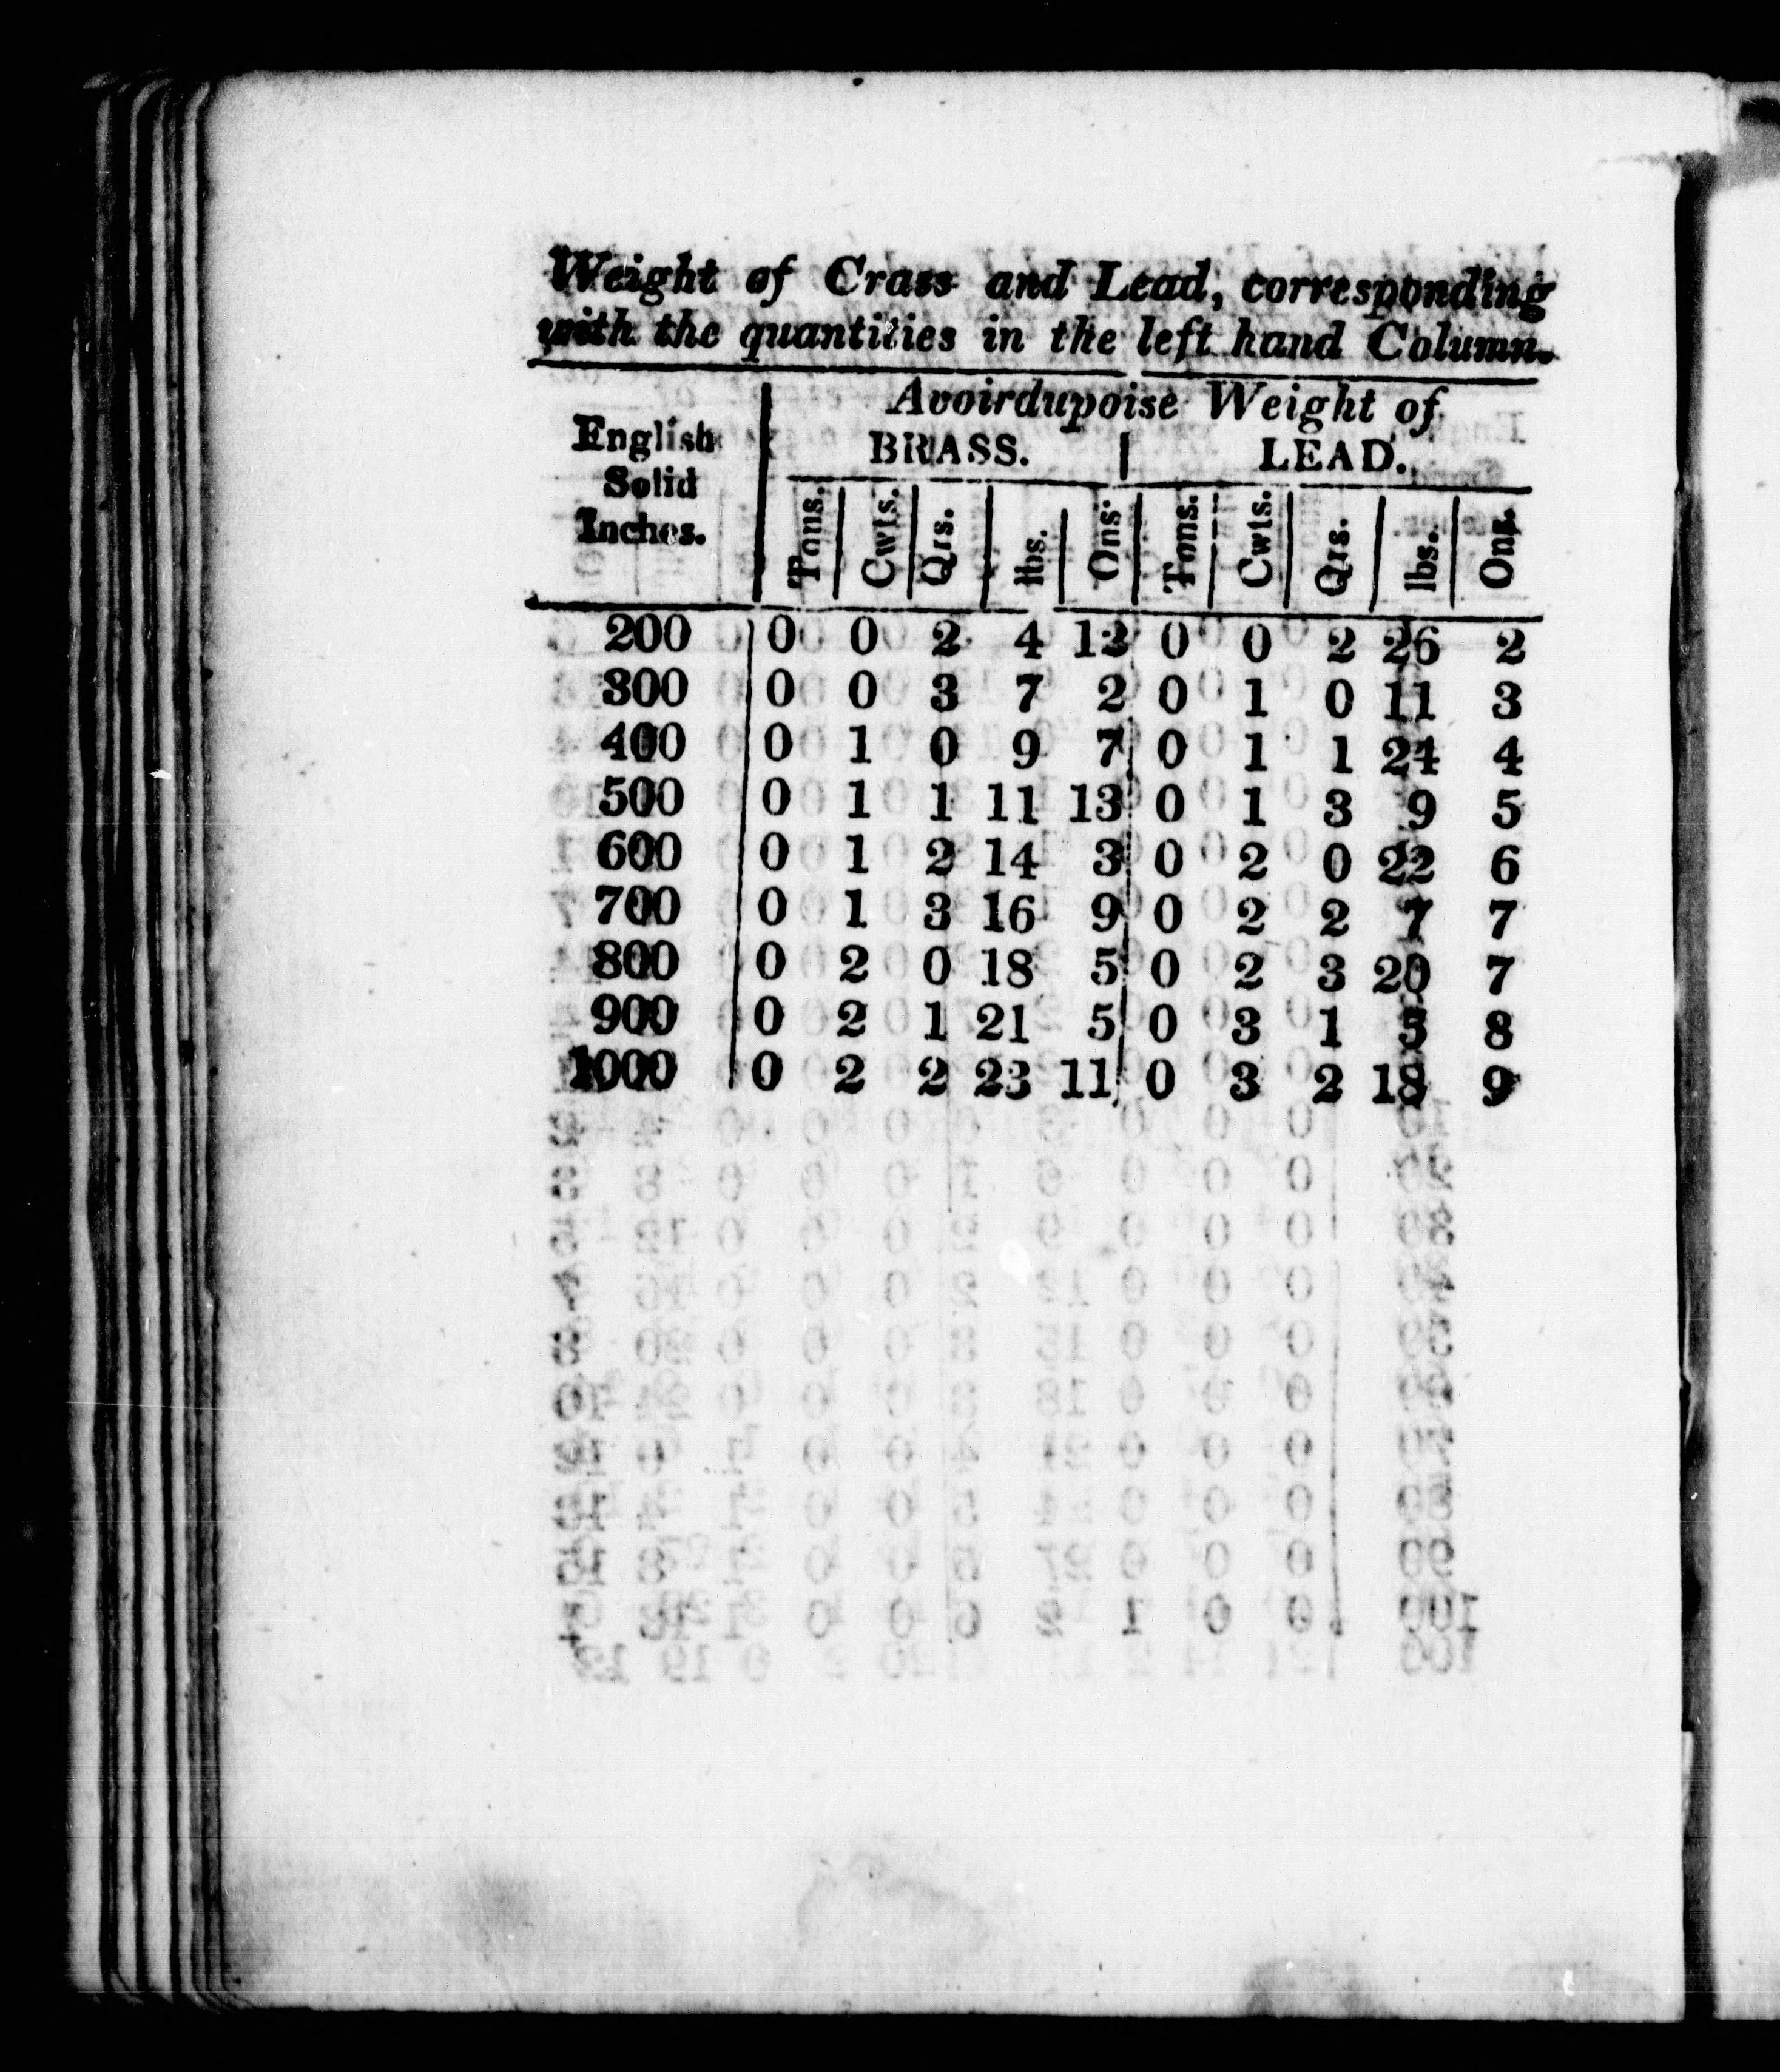 Weight of Crass and Lead, corresponding
with the quantities in the left hand Column.
English Solid Inches.
Avoirdupoise Weight of
BRASS. LEAD.
Tons. Cwts. Qrs. lbs. Ons. Tons. Cwts. Qrs. lbs. Ons.
200 0 0 2 4 12 0 0 2 26 2
300 0 0 3 7 2 0 1 0 11 3
400 0 1 0 9 7 0 1 1 24 4
500 0 1 1 11 13 0 1 3 9 5
600 0 1 2 14 3 0 2 0 22 6
700 0 1 3 16 9 0 2 2 7 7
800 0 2 0 18 5 0 2 3 20 7
900 0 2 1 21 5 0 3 1 5 8
1000 0 2 2 23 11 0 3 2 18 9